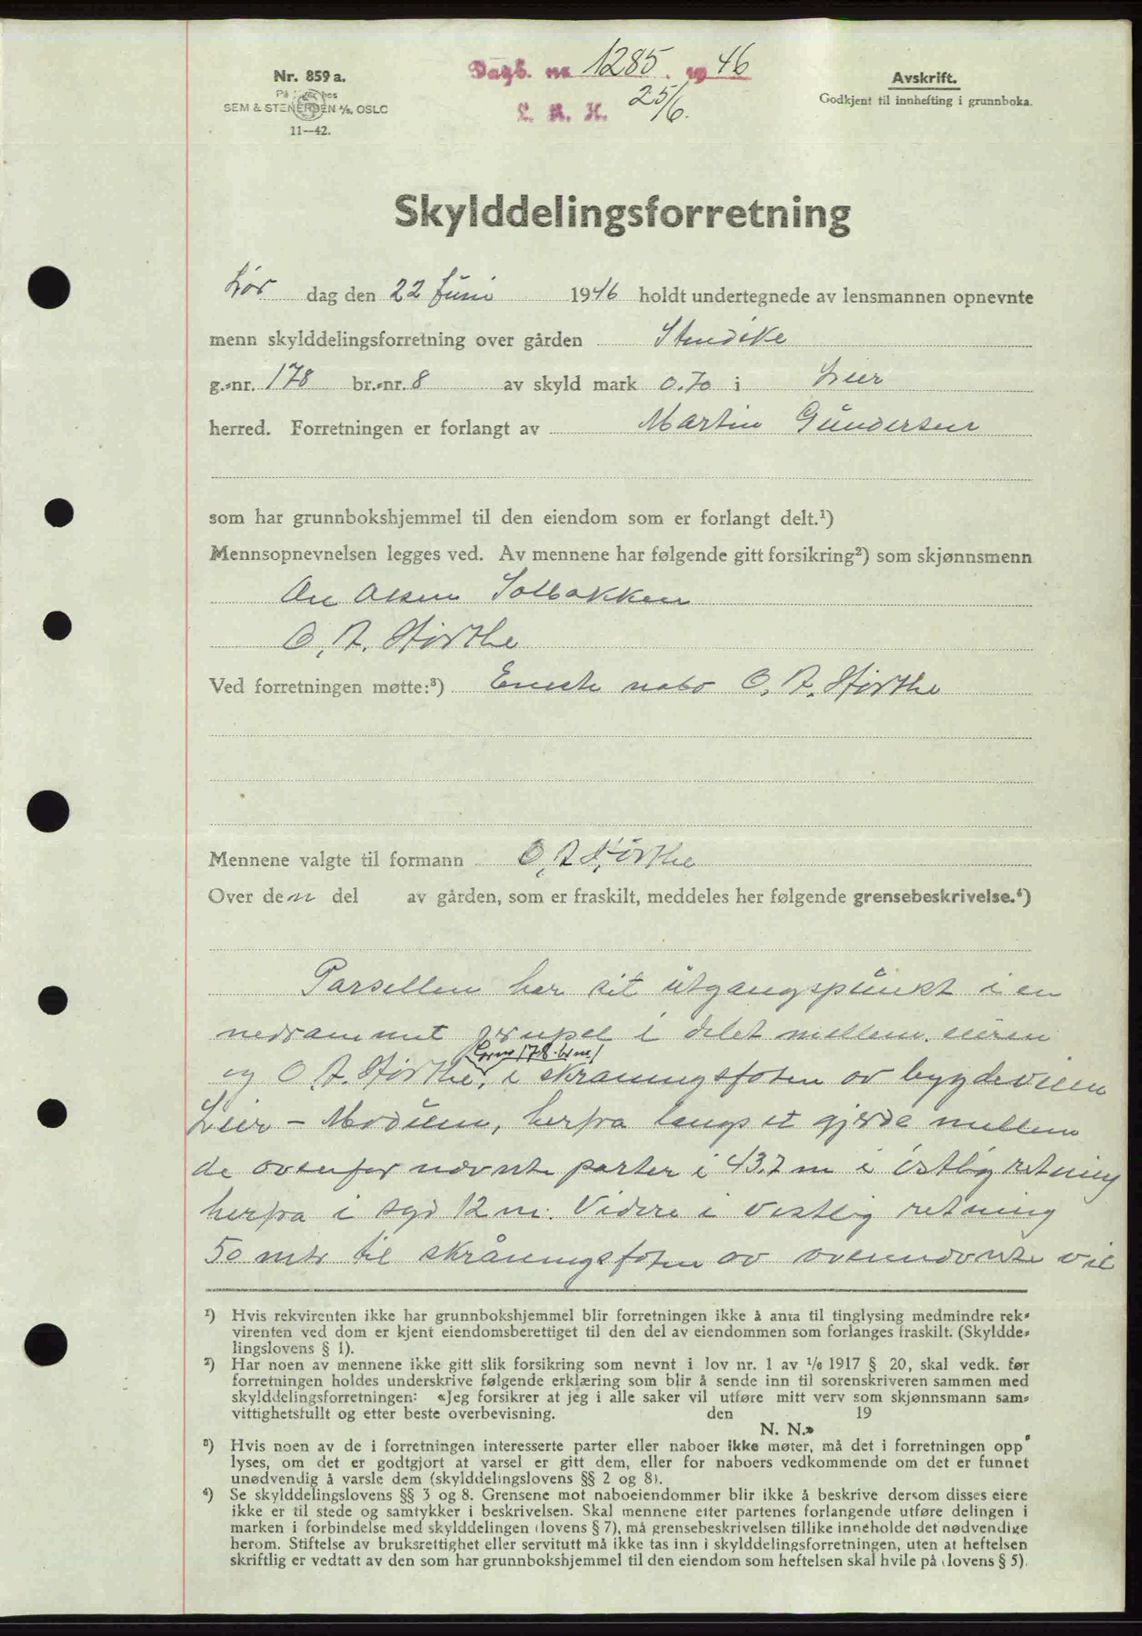 Nr. 859 a.
SEM & STENERSEN A/S. OSLO
11—42.
Dagb. nr. 1285. 1946
L. R. H. 25/6.
Avskrift.
Godkjent til innhefting i grunnboka.
Skylddelingsforretning
Lør dag den 22 Juni 1946 holdt undertegnede av lensmannen opnevnte
menn skylddelingsforretning over gården
g.-nr. 178 br.-nr. 8 av skyld mark 0.70 i Lier
herred. Forretningen er forlangt av Martin Gundersen
som har grunnbokshjemmel til den eiendom som er forlangt delt.¹)
Mennsopnevnelsen legges ved. Av mennene har følgende gitt forsikring²) som skjønnsmenn
Olsen Solbakken
O. A. Hørthe
Ved forretningen møtte:³) Eneste nabo O. A. Hørthe
Mennene valgte til formann O. A. Hørthe
Over den del av gården, som er fraskilt, meddeles her følgende grensebeskrivelse.⁴)
Parsellen har sit utgangspunkt i en
nedrammet i delet mellem eieren
og O. A. Hørthe, i skråningsfoten av bygdeveien
Lier – Modum, herfra langs et gjerde mellem
de ovenfor nævnte parter i 43.7 m i østlig retning
herfra i syd 12 m. Videre i vestlig retning
50 mtr til skråningsfoten av ovennævnte vei
¹) Hvis rekvirenten ikke har grunnbokshjemmel blir forretningen ikke å anta til tinglysing medmindre rek-
virenten ved dom er kjent eiendomsberettiget til den del av eiendommen som forlanges fraskilt. (Skyldde-
lingslovens § 1).
²) Har noen av mennene ikke gitt slik forsikring som nevnt i lov nr. 1 av 1/6 1917 § 20, skal vedk. før
forretningen holdes underskrive følgende erklæring som blir å sende inn til sorenskriveren sammen med
skylddelingsforretningen: «Jeg forsikrer at jeg i alle saker vil utføre mitt verv som skjønnsmann sam-
vittighetsfullt og etter beste overbevisning. den 19
N. N.»
³) Hvis noen av de i forretningen interesserte parter eller naboer ikke møter, må det i forretningen opp
lyses, om det er godtgjort at varsel er gitt dem, eller for naboers vedkommende om det er funnet
unødvendig å varsle dem (skylddelingslovens §§ 2 og 8).
⁴) Se skylddelingslovens §§ 3 og 8. Grensene mot naboeiendommer blir ikke å beskrive dersom disses eiere
ikke er til stede og samtykker i beskrivelsen. Skal mennene etter partenes forlangende utføre delingen i
marken i forbindelse med skylddelingen (lovens § 7), må grensebeskrivelsen tillike inneholde det nødvendige
herom. Stiftelse av bruksrettighet eller servitutt må ikke tas inn i skylddelingsforretningen, uten at heftelsen
skriftlig er vedtatt av den som har grunnbokshjemmel til den eiendom som heftelsen skal hvile på (lovens § 5).